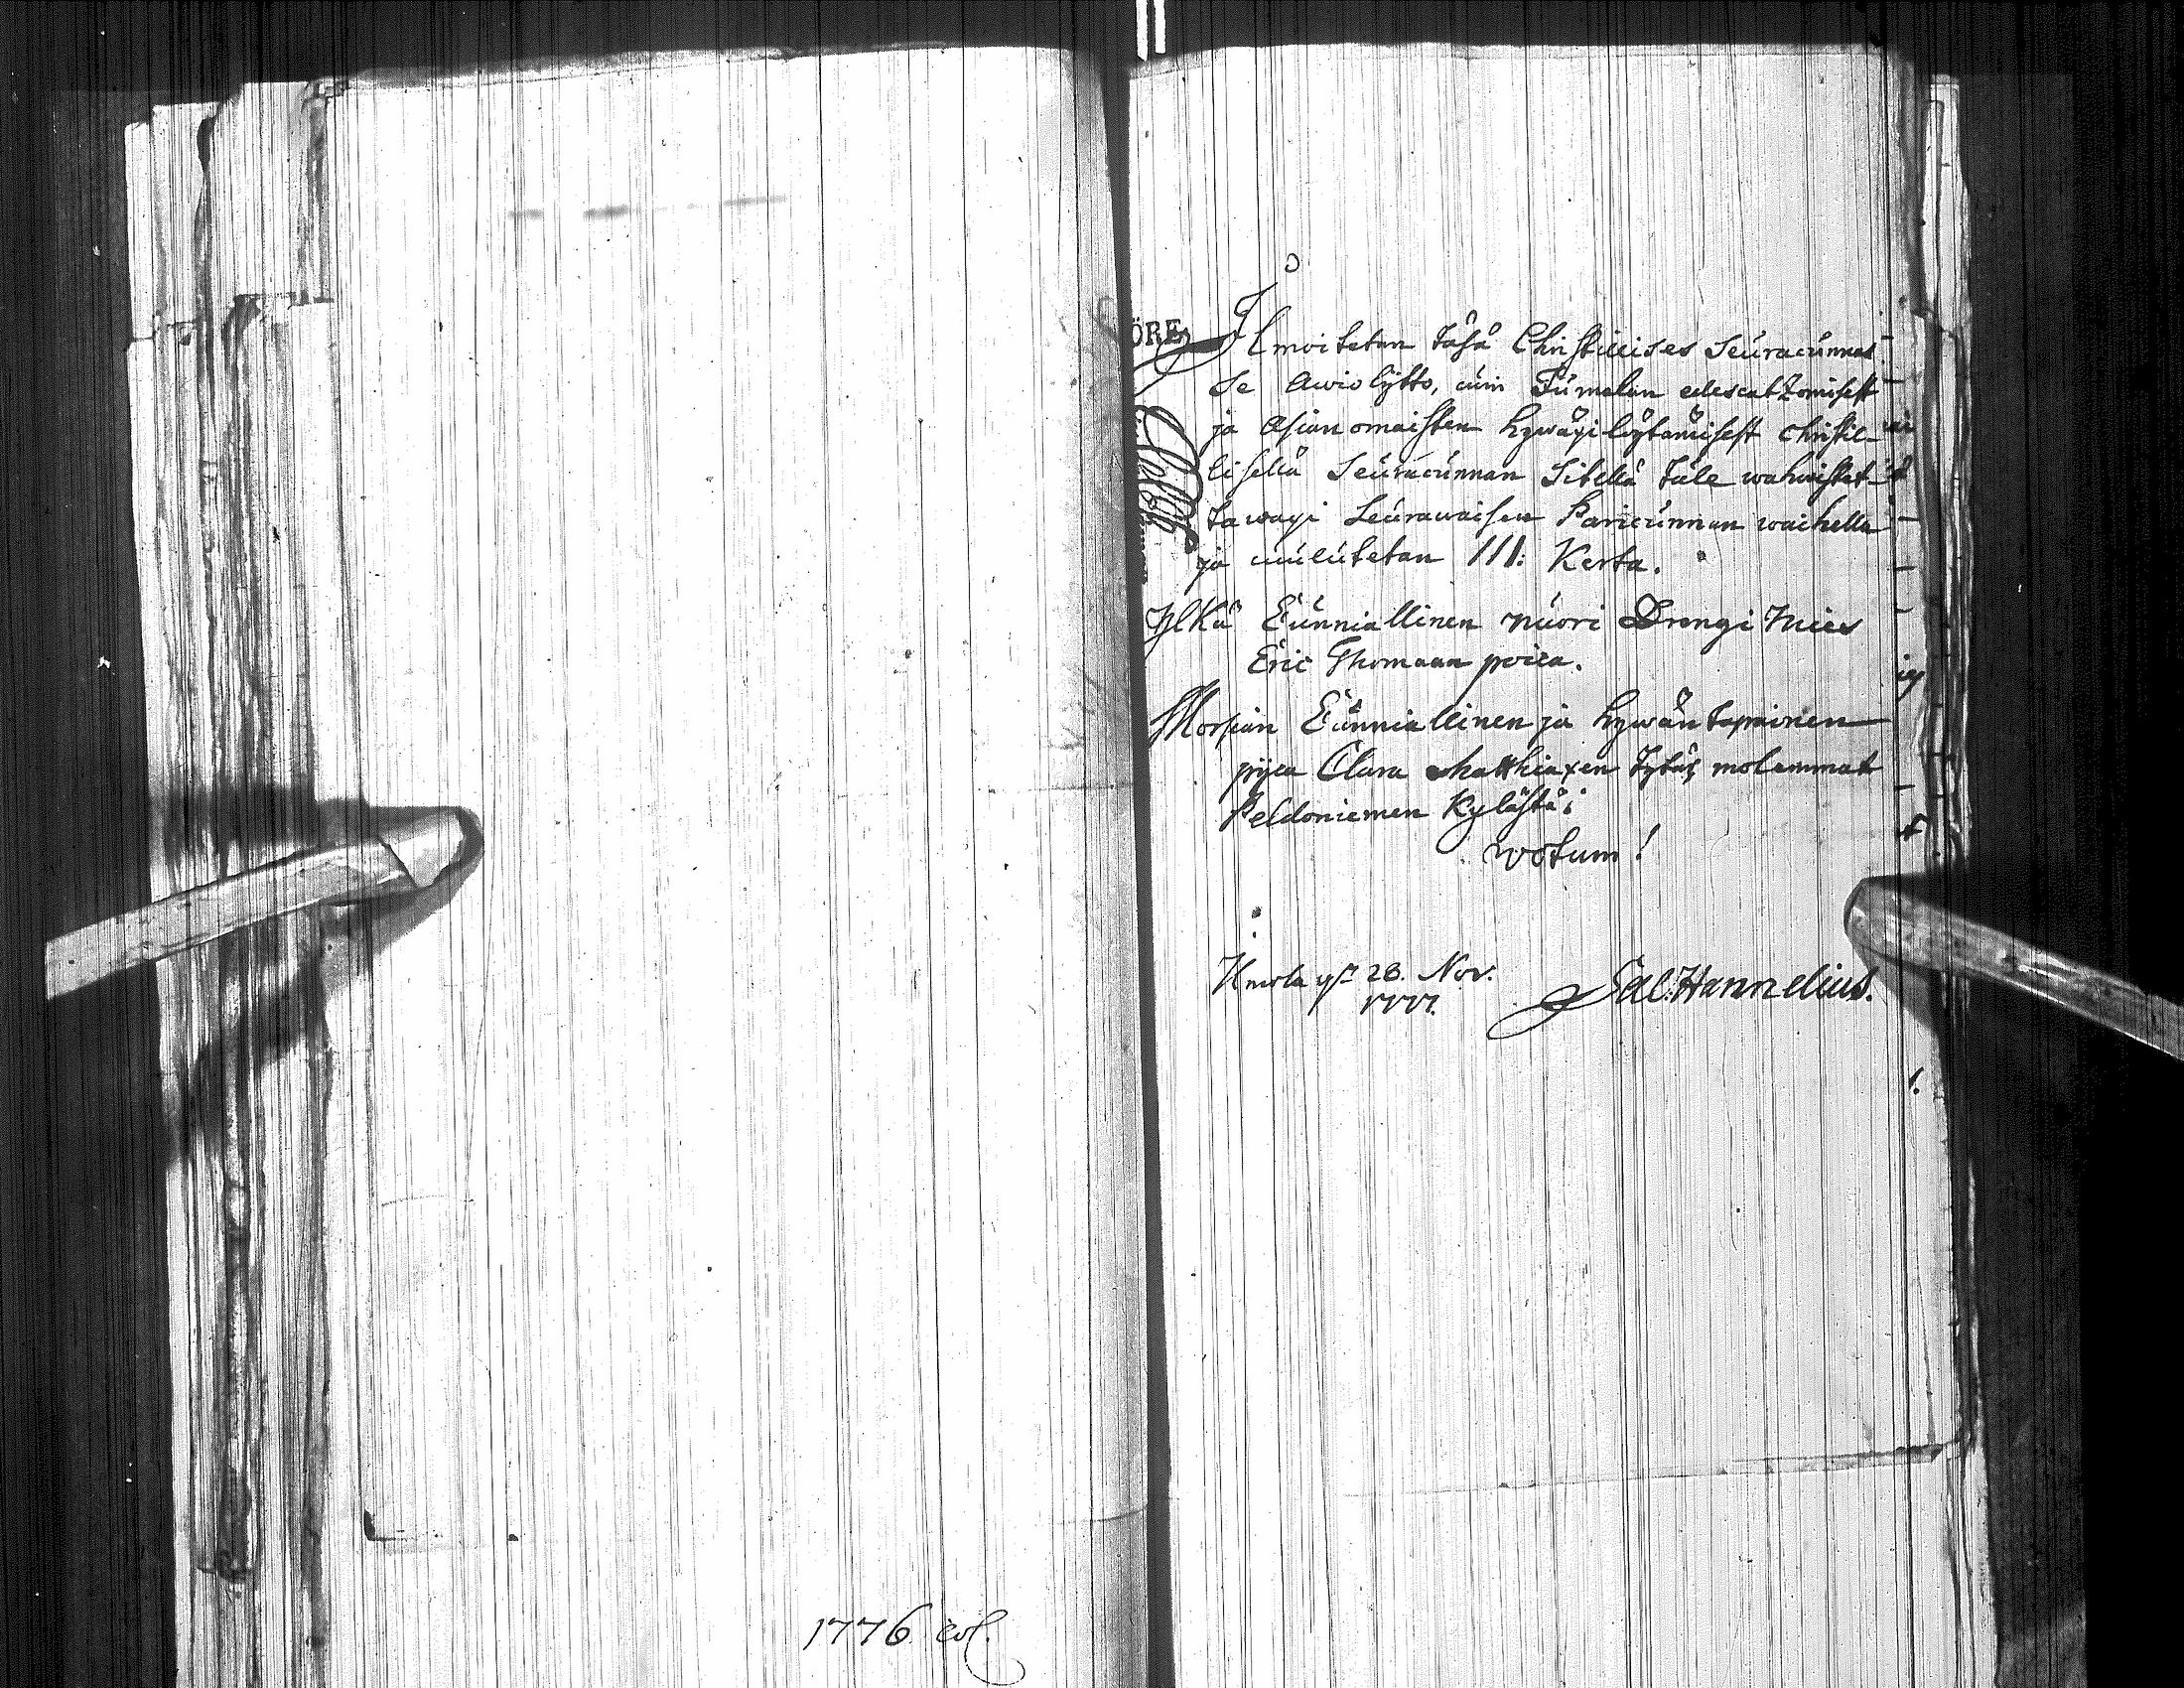 1776. col.
ÖRE
Ilmoitetan täsä Christillises Seuracunnas
se Awio lijtto, cuin Jumalan edescatzomisest
ja Asian omaisten hywäxi löytämisest christil-
lisellä Seuracunnan Sitellä tule wahwistet-
tawaxi seurawaisen Paricunnan waihella
ja cuulutetan III: Kerta.
Ylkä Cunniallinen nuori Drengi Mies
Eric Thomaan poica.
Morsian Cunniallinen ja hywän tapainen
pijca Clara Matthiaxen Tytär molemmat
Peldoniemen Kylästä;
wotum!
28. Nov.
1777.
Sal: Hannelius.